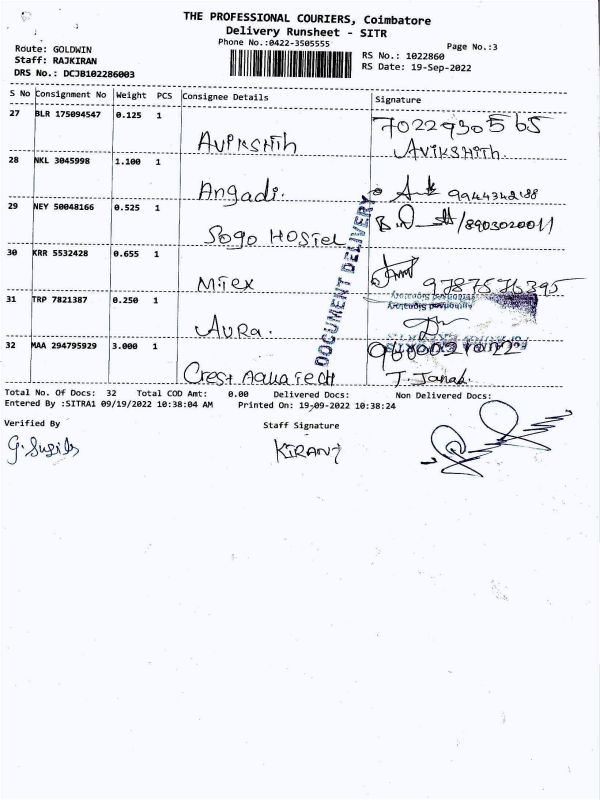 THE PROFESSIONAL COURIERS, Coimbatore
Delivery Runsheet - SITR
Phone No.:0422-3505555
Page No.:3
Route: GOLDWIN
Staff: RAJKIRAN
DRS No.: DCJB102286003
RS No.: 1022860
RS Date: 19-Sep-2022
S No Consignment No Weight PCS Consignee Details Signature
27 BLR 175094547 0.125 1 Avikshith 7022930565
AVIKSHITH.
28 NKL 3045998 1.100 1 Angadi. 9944342188
29 NEY 50048166 0.525 1 Sogo Hostel /8903020011
30 KRR 5532428 0.655 1 Mitex 9787576395
Authorised Signatory
31 TRP 7821387 0.250 1 AURA.
32 MAA 294795929 3.000 1 Crest Aquatech
T. Janak.
DOCUMENT DELIVERY
Total No. Of Docs: 32 Total COD Amt: 0.00 Delivered Docs: Non Delivered Docs:
Entered By :SITRA1 09/19/2022 10:38:04 AM Printed On: 19-09-2022 10:38:24
Verified By Staff Signature
KIRAN